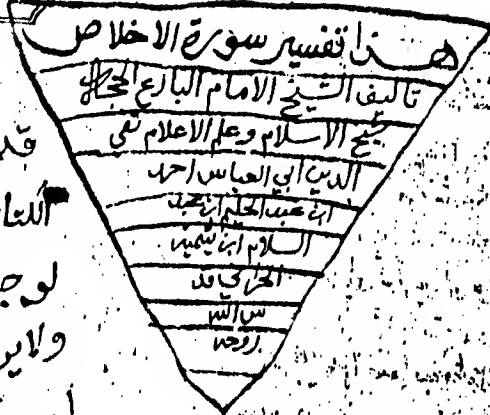 هذا تفسير سورة الاخلاص
تاليف الشيخ الامام البارع
شيخ الاسلام وعلم الاعلام تقي
الدين ابي العباس احمد
ابن عبد الحليم ابن عبد
السلام ابن تيميه
الحراني قد
س الله
روحه
لوجـ